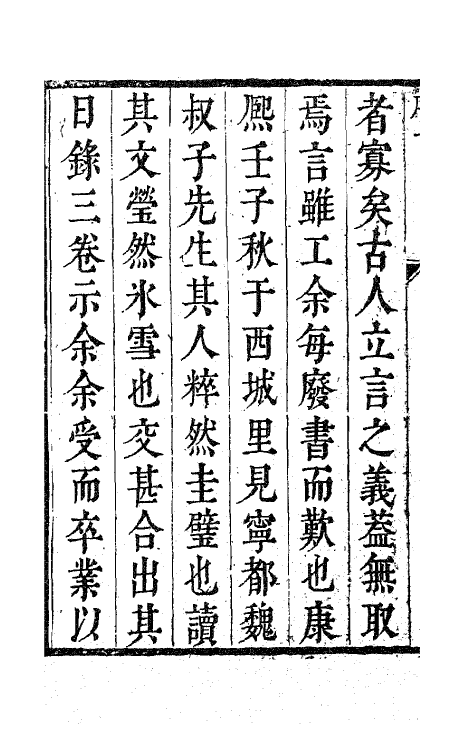 者寡矣古人立言之義葢無取
焉言雖工余每廢書而歎也康
熈壬子秋于西城里見寧都魏
叔子先生其人粹然圭璧也讀
其文瑩然氷雪也交甚合出其
日錄三卷示余余受而卒業以